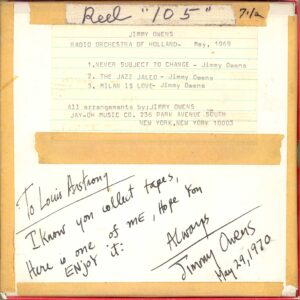 Reel "105" 7 1/2
JIMMY OWENS
RADIO ORCHESTRA OF HOLLAND- May, 1969
1.NEVER SUBJECT TO CHANGE - Jimmy Owens
2. THE JAZZ JALEO - Jimmy Owens
3. MILAN IS LOVE- Jimmy Owens
All arrangements by:JIMMY OWENS
JAY-OH MUSIC CO. 236 PARK AVENUE SOUTH
NEW YORK,NEW YORK 10003
To Louis Armstrong
I Know you collect tapes,
Here is one of mE, Hope You
ENjoy it:
Always
Jimmy Owens
May 29, 1970